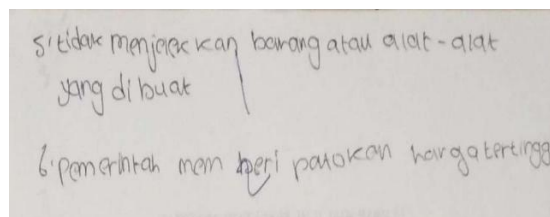 5. tidak menjelekkan barang atau alat-alat
yang dibuat
6. pemerintah mem beri patokan harga tertingg